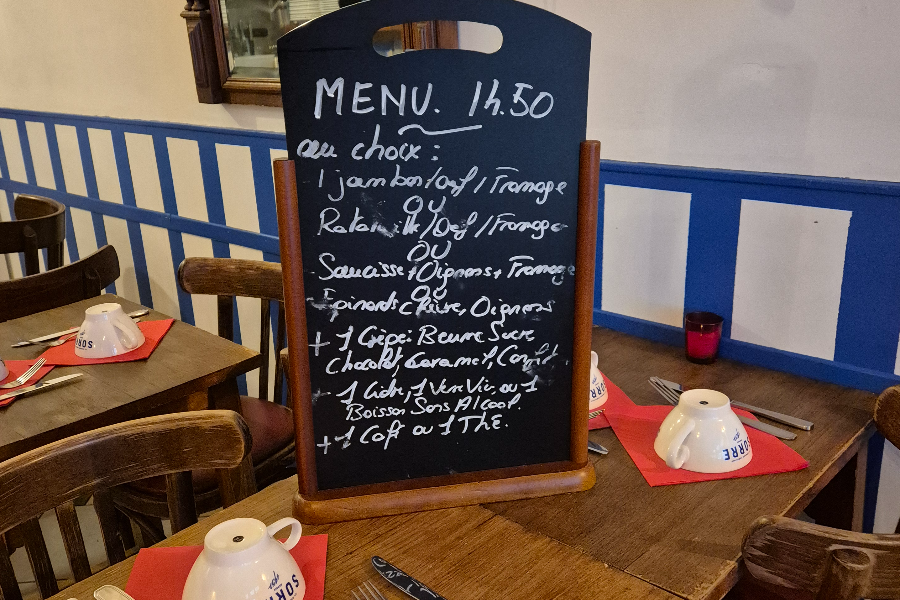 MENU. 14.50
au choix :
1 jambon/Oeuf / Fromage
OU
Ratatouille/Oeuf /Fromage
OU
Saucisse+Oignons+ Fromage
OU
Epinards Chèvre, Oignons
+ 1 Crêpe: Beurre Sucre,
Chocolat, Caramel, Confit
- 1 Cidre, 1 Verre Vin, ou 1
Boisson Sans Alcool.
+ 1 Café ou 1 Thé.
SORRE
SORRE
SORRE